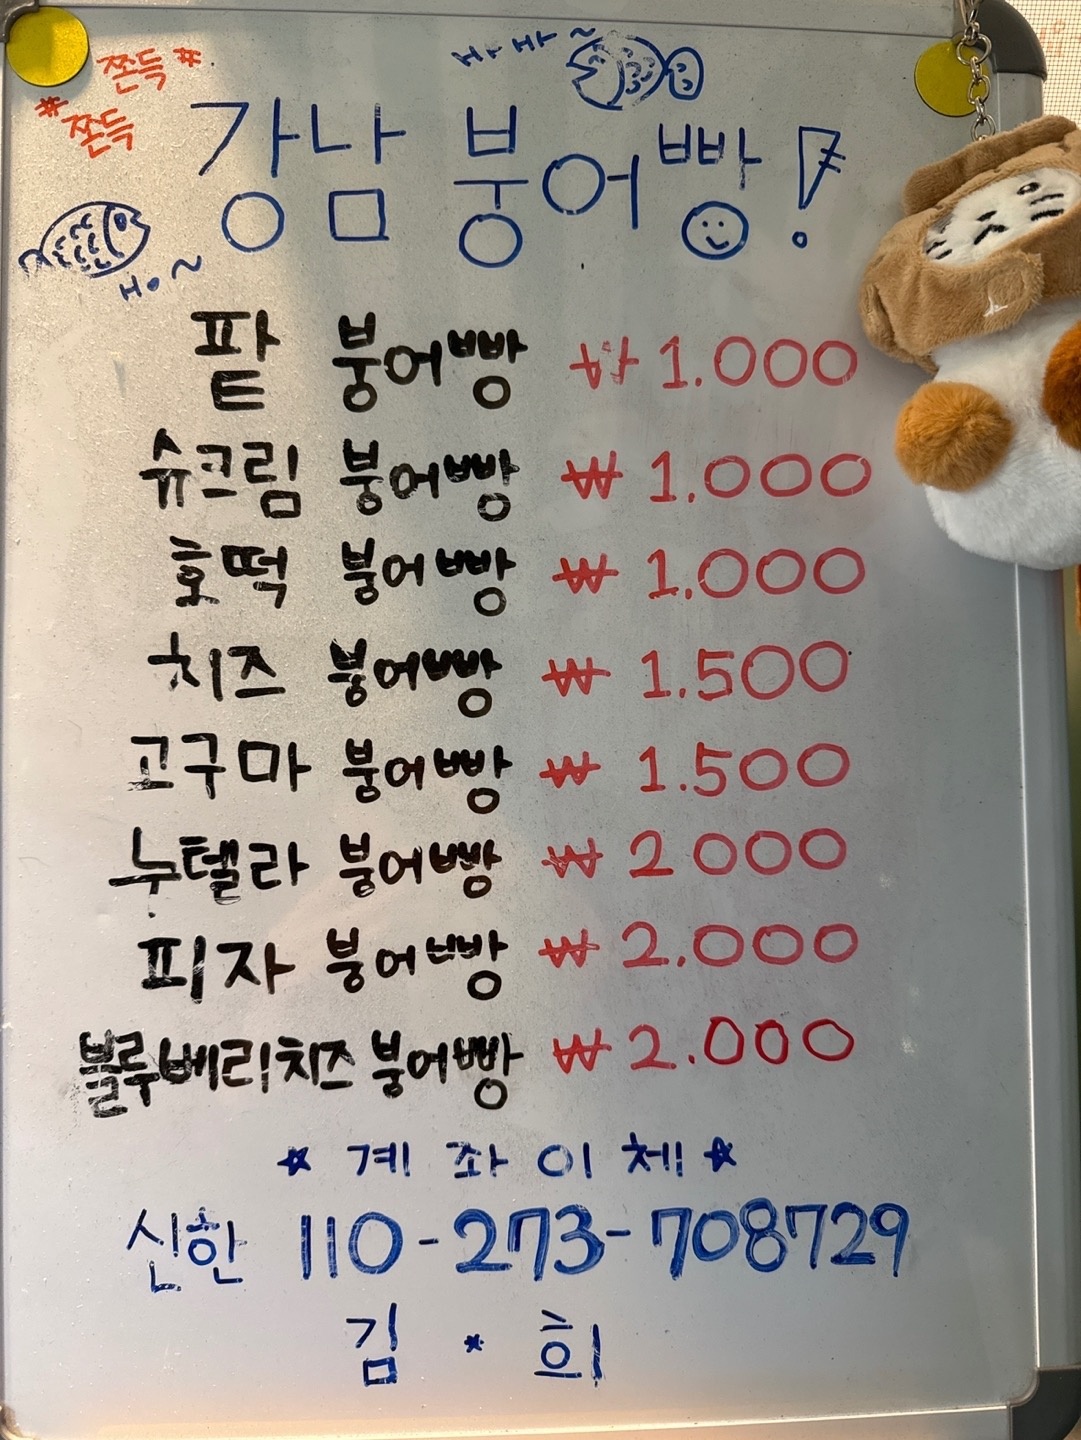 바바~
#쫀득#
쫀득
강남 붕어빵!
바~
팥 붕어빵 ₩ 1.000
슈크림 붕어빵 ₩ 1.000
호떡 붕어빵 ₩ 1.000
치즈 붕어빵 ₩ 1.500
고구마 붕어빵 ₩ 1.500
누텔라 붕어빵 ₩ 2000
피자 붕어빵 ₩ 2.000
블루베리치즈 붕어빵 ₩ 2.000
★ 계좌이체 ★
신한 110-273-708729
김 * 희